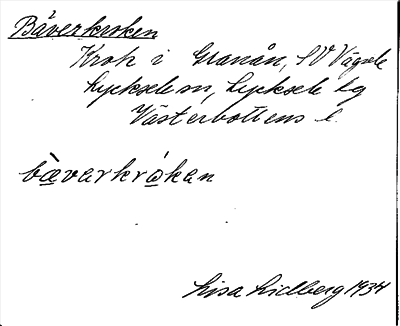 Bäverkroken
Krok i Granån, SV Vägsele
Lycksele sn, Lycksele tg
Västerbottens l.
bàvarkrokan
Lisa Lidberg 1934